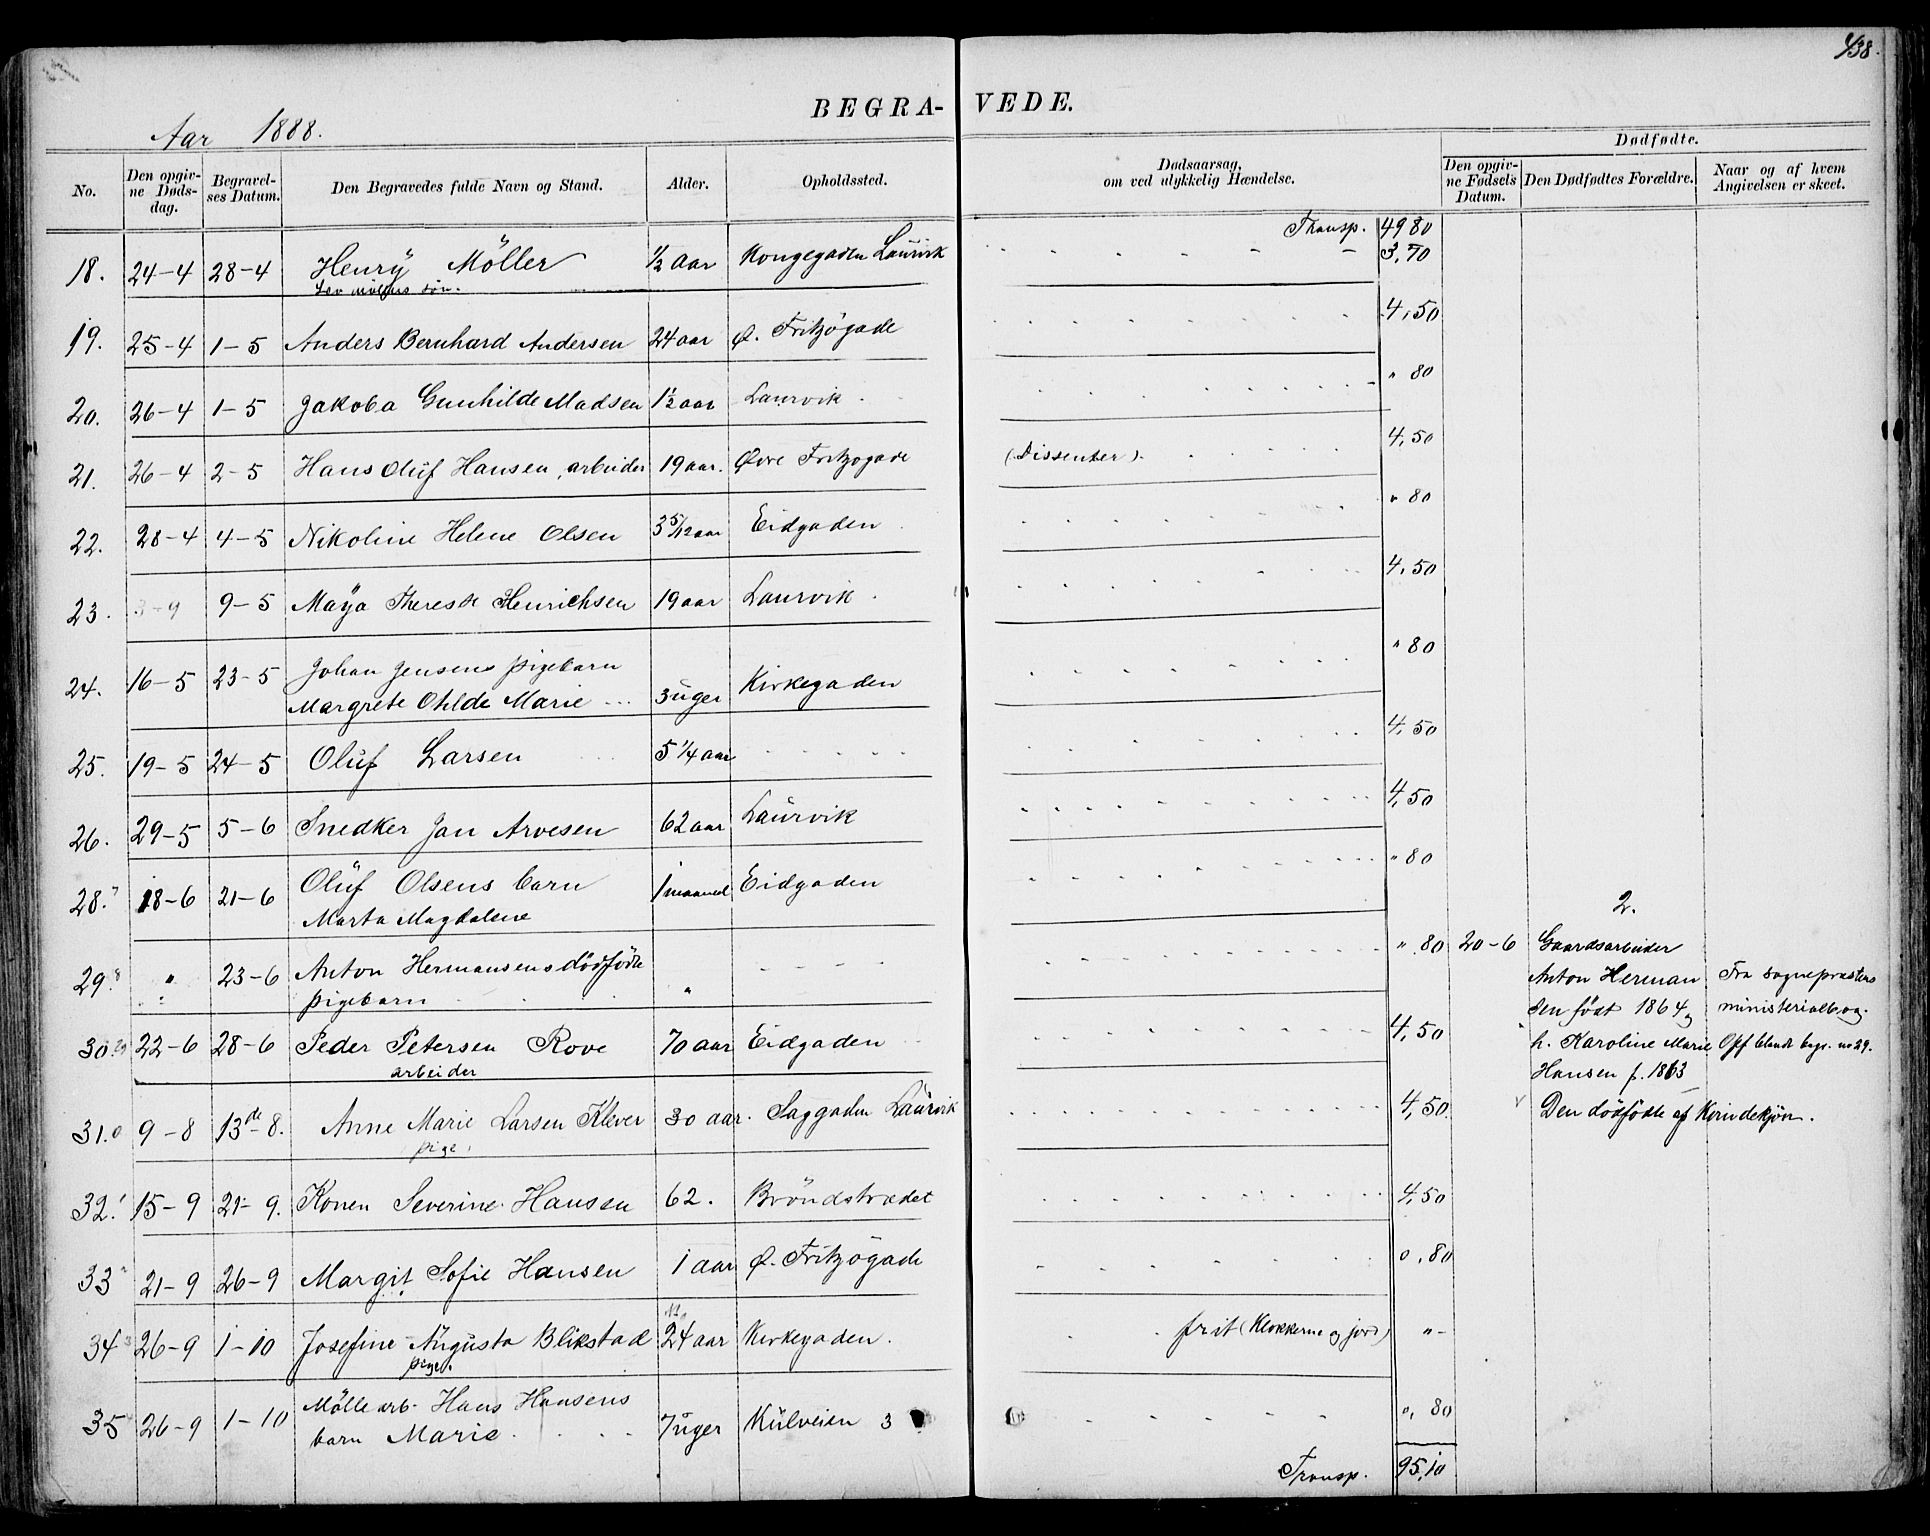 438.
BEGRAVEDE.
Aar 1888.
Dødfødte.
No. Den opgivne Dødsdag. Begravelses Datum. Den Begravedes fulde Navn og Stand. Alder. Opholdssted. Dødsaarsag, om ved ulykkelig Hændelse. Den opgivne Fødsels Datum. Den Dødfødtes Forældre. Naar og af hvem Angivelsen er skeet.
Transp. 49 80
18. 24-4 28-4 Henrÿ Möller ½ aar Kongegaden Laurvik 3,70
søn.
19. 25-4 1-5 Anders Bernhard Andersen 24 aar Ø. Fritzögade 4,50
20. 26-4 1-5 Jakoba Gunhilde Madsen 1½ aar Laurvik. " 80
21. 26-4 2-5 Hans Oluf Hansen, arbeider 19 aar. Øvre Fritzogade (Dissenter). 4,50
22. 28-4 4-5 Nikoline Helene Olsen 3 5/12 aar Eidgaden " 80
23. 3-9 9-5 Maÿa Therese Henrichsen 19 aar Laurvik. 4,50
24. 16-5 23-5 Johan Jensens pigebarn
Margrete Ohlde Marie 3 uger Kirkegaden " 80
25. 19-5 24-5 Oluf Larsen 5 ¼ aar 4,50
26. 29-5 5-6 Snedker Jan Arvesen 62 aar Laurvik 4,50
28. 7 18-6 21-6 Oluf Olsens barn 1 maaned Eidgaden " 80
Marta Magdalene
2.
29. 8 " 23-6 Anton Hermansens dödfödte " " 80 20-6 Gaardsarbeider
pigebarn
Anton Herman Fra sognepræstens
sen født 1864 og ministerialbog.
30. 29 22-6 28-6 Peder Petersen Rove 70 aar Eidgaden 4,50 h. Karoline Marie Opf blandt begr. no 29.
arbeider
Hansen f. 1863
31. 0 9-8 13de-8. Anne Marie Larsen Klever 30 aar. Saggaden Laurvik 4,50 Den dödfödte af Kvindekjön.
pige.
32. 1 15-9 21-9. Konen Severine Hansen 62. Bröndstrædet 4,50
33 21-9 26-9 Margit Sofie Hansen 1 aar Ø. Fritzögade 0,80
34 3 26-9 1-10 Josefine Augusta Blikstad 24 aar Kirkegaden. frit (Klokkerne og jord) "-
pige.
35 26-9 1-10 Mölle arb. Hans Hansens
barn Marie 7 uger Kulveien 3 ", 80
Transp. 95,10